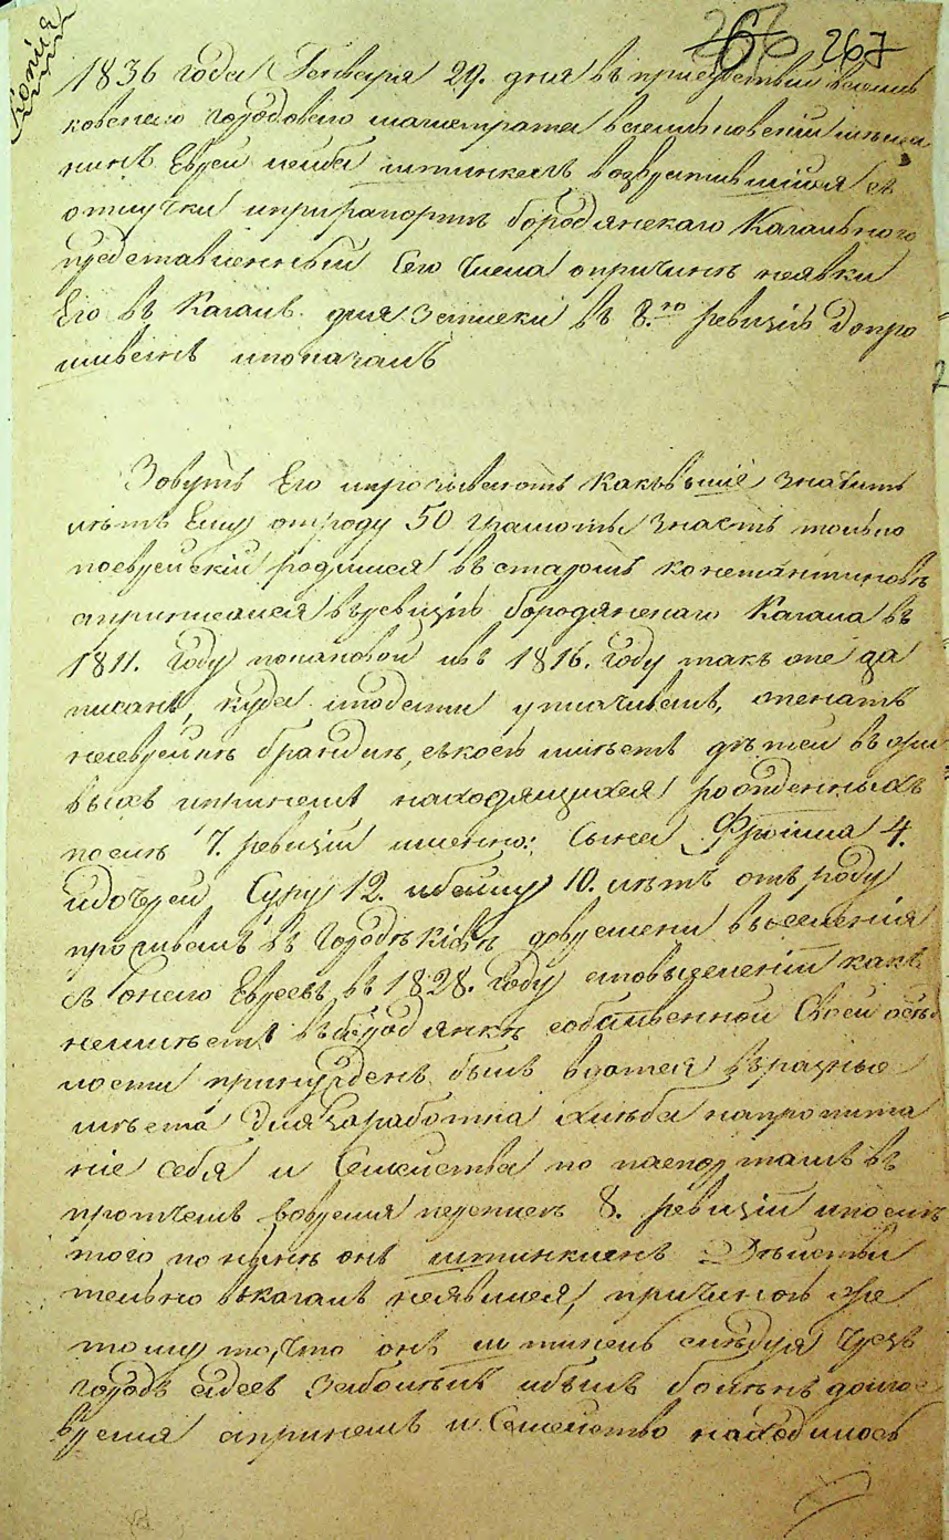 Копія
267 267
1836 года Генваря 29. дня въ присудствіи васил
ковскаго городоваго магистрата васильковскій мѣща
нинъ Еврей лейба штинкель возвратившійся съ
отлучки ипри рапортѣ бородянскаго Кагальнаго
представленный Сего Числа опричинѣ неявки
Его въ Кагалъ для Записки въ 8.ю ревизію допро
шиванъ ипоказалъ
Зовутъ Его ипрозываютъ какъвышіе значитъ
лѣтъ Ему отроду 50 грамоты знаетъ только
поеврейскій родился въстаромъ константиновѣ
априписался въревизію бородянскаго Кагала въ
1811. Году покаковой ивъ 1816. Году такъ оне за
писанъ, куда иподати уплачиваетъ, женатъ
наеврейкѣ брандлѣ, съкоей имѣетъ дѣтей въжи
выхъ ипринемъ находящихся рожденныхъ
послѣ 7. ревизіи именно: Сына Фроима 4.
идочерей Суру 12. ибейлу 10. лѣтъ отъ роду
проживалъ въ Городѣ кіевѣ довремени выселенія
съ Онаго Евреевъ въ 1828. Году аповыселеніи какъ
неимѣетъ въбородянкѣ собственной Своей осѣд
лости принужденъ былъ вдатся въразные
мѣста Для Заработка хлѣба напропита
ніе себя и Семейства по паспортамъ въ
протчемъ вовремя переписѣ 8. ревизіи ипослѣ
того понынѣ онъ штинкиль Дѣйстви
тельно вкагалъ неявился, причиною же
тому то, что онъ штинкель слѣдуя Чрезъ
городъ одесъ Заболѣлъ ибылъ боленъ долгое
время апринемъ и Семейство находилось